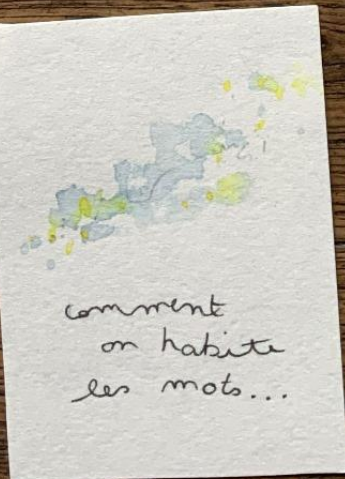 comment
on habite
les mots...